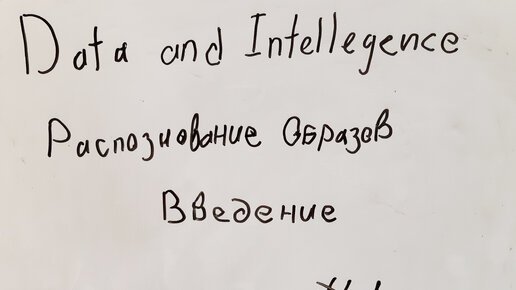 Data and Intellegence
Распознование Образов
Введение